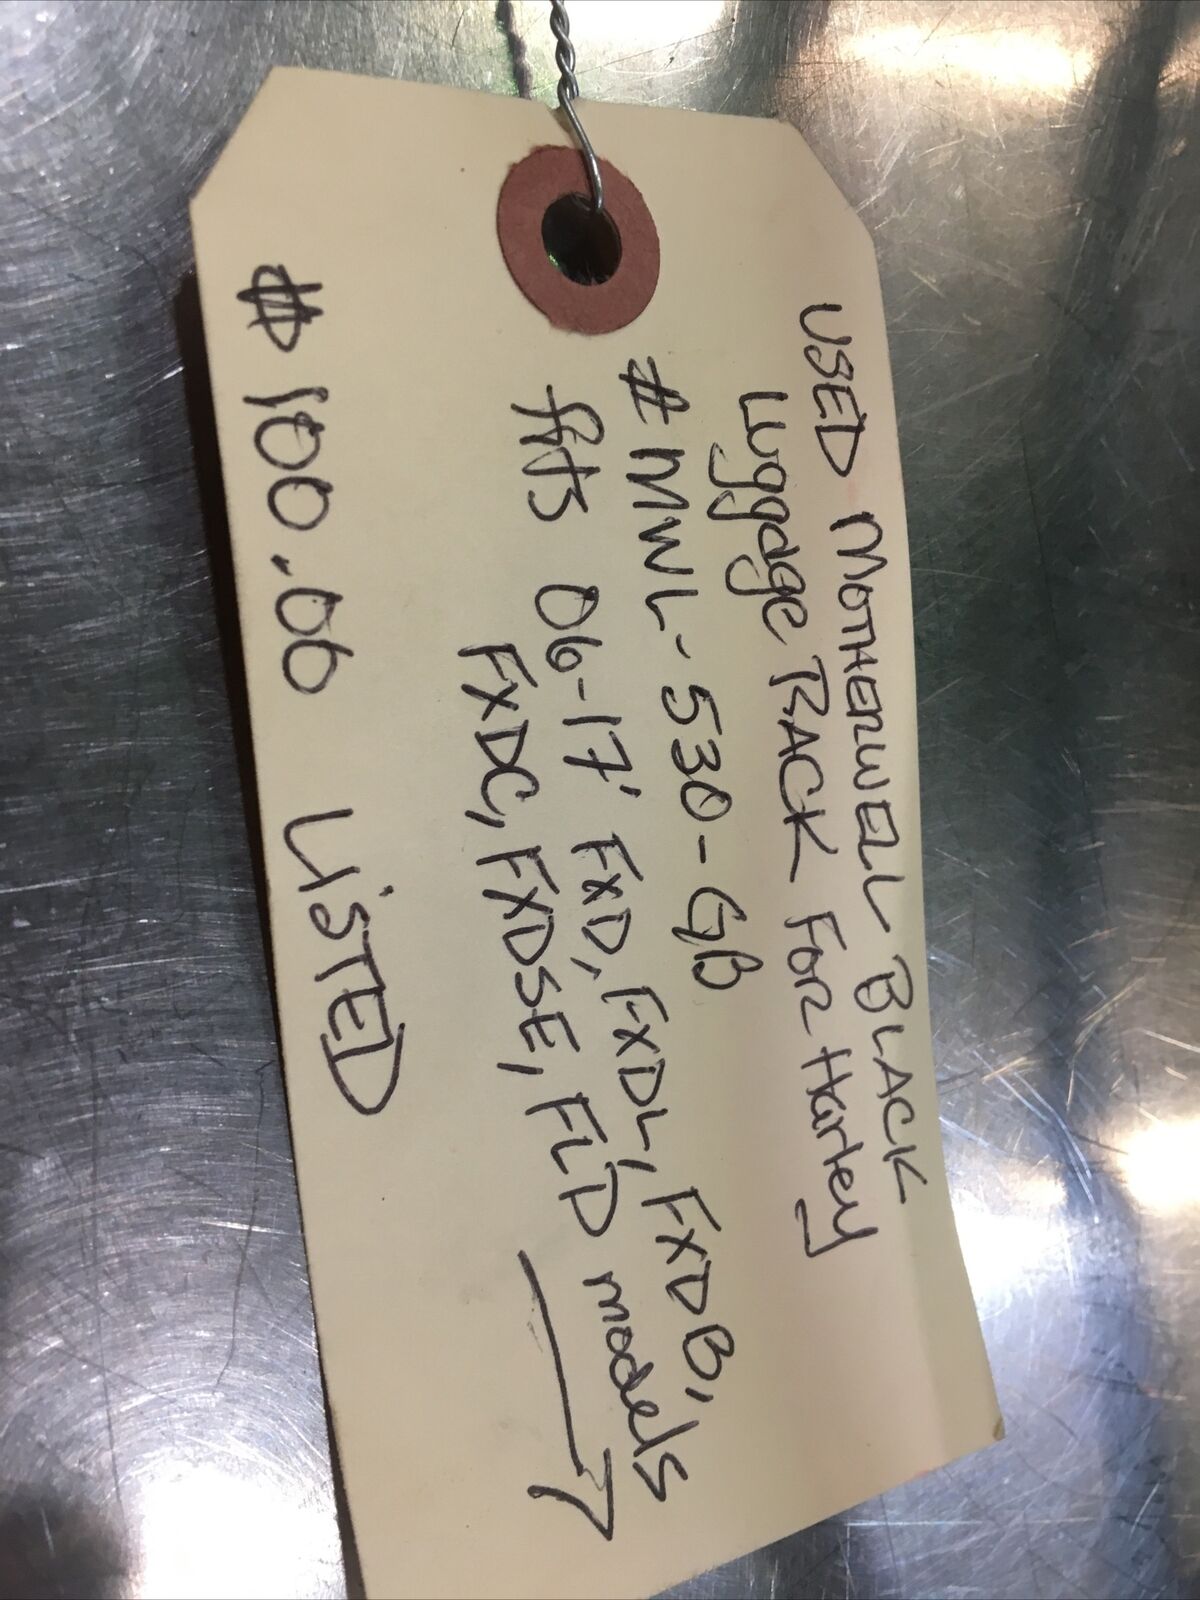 USED MOTHERWELL BLACK
Luggage RACK FOR Harley
#MWL-530-GB
fits 06-17' FXD, FXDL, FXDB,
FXDC, FXDSE, FLD models
$100.00 LiSTED